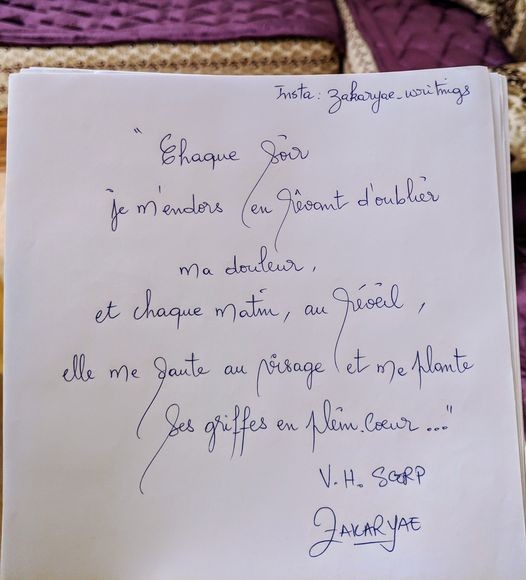 Insta: zakaryae_writings
"Chaque soir
je m'endors en rêvant d'oublier
ma douleur,
et chaque matin, au réveil,
elle me saute au visage et me plante
ses griffes en plein cœur..."
V.H. SCORP
ZAKARYAE